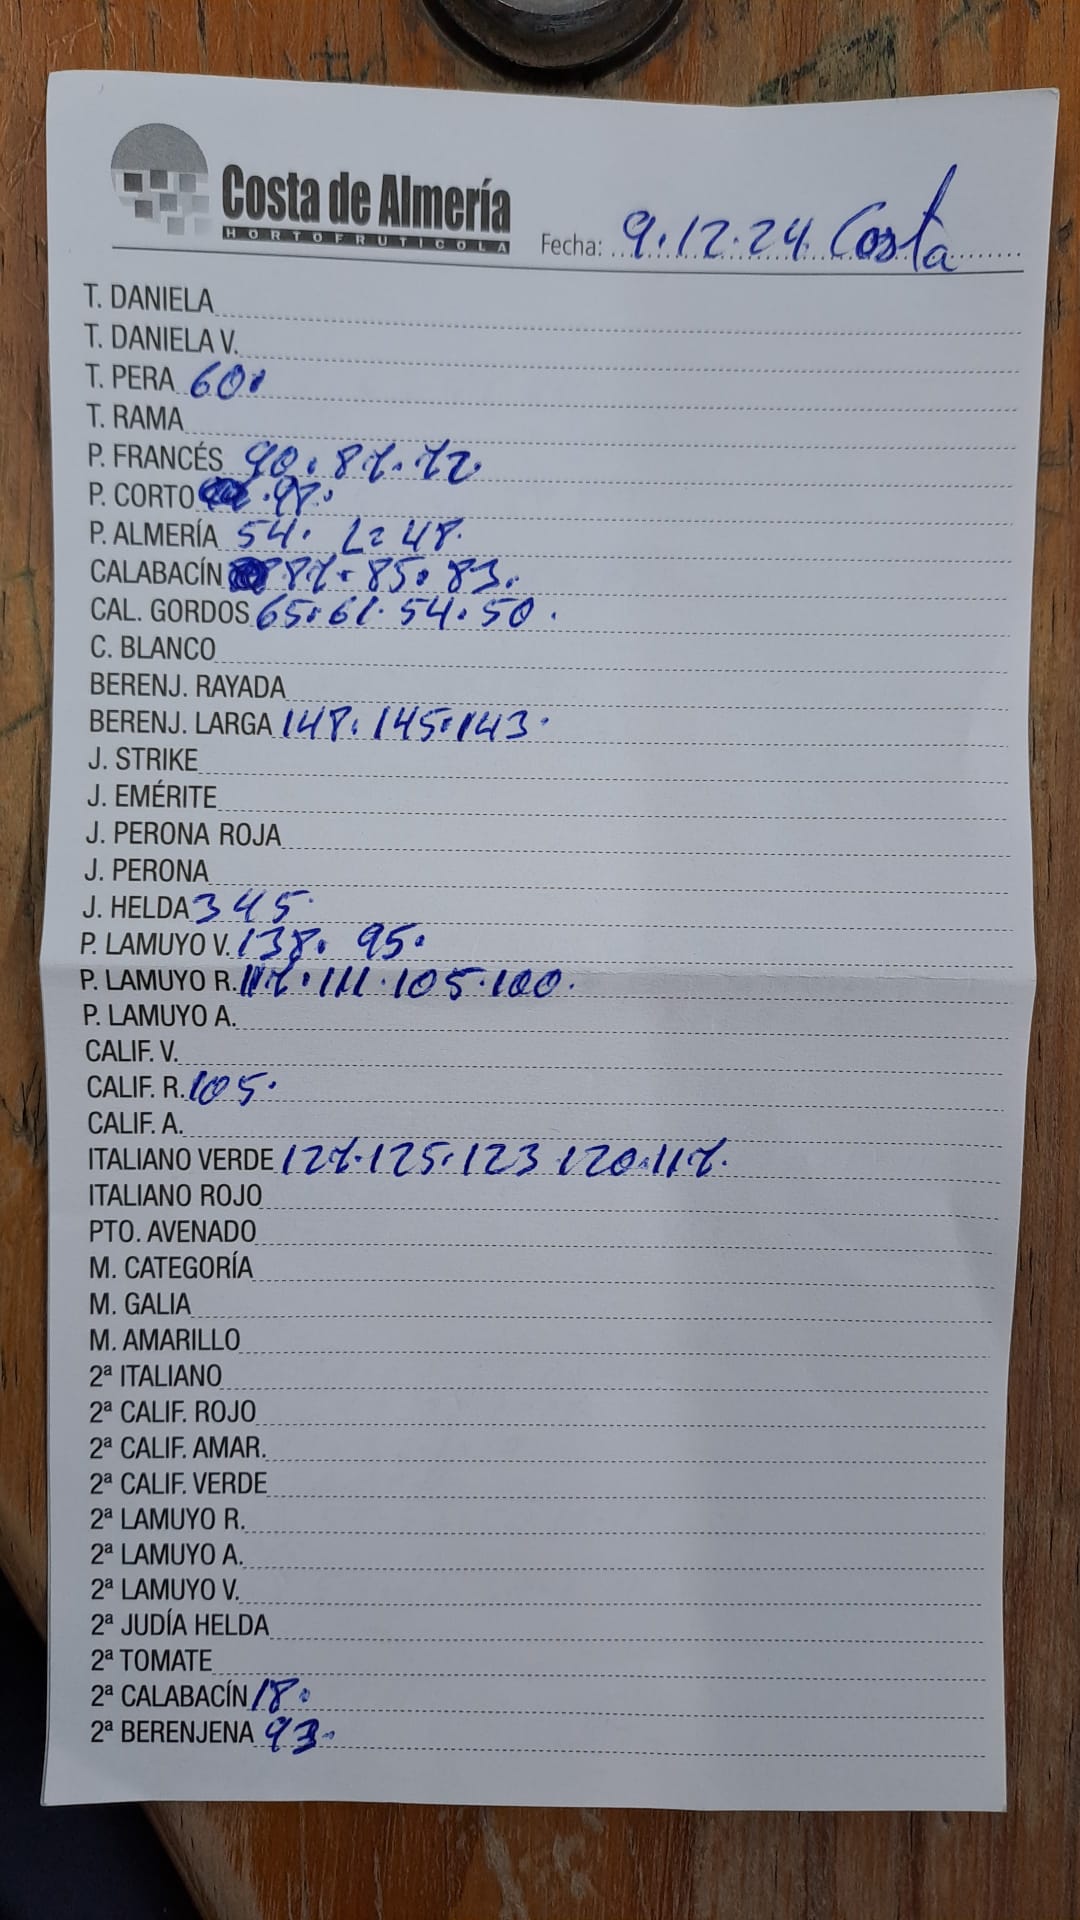 Costa de Almería
HORTOFRUTÍCOLA
Fecha: 9.12.24 Costa
T. DANIELA
T. DANIELA V.
T. PERA 60.
T. RAMA
P. FRANCÉS 90. 87. 72.
P. CORTO . 98.
P. ALMERÍA 54. L= 48.
CALABACÍN 87. 85. 83.
CAL. GORDOS 65. 61. 54. 50.
C. BLANCO
BERENJ. RAYADA
BERENJ. LARGA 148. 145. 143.
J. STRIKE
J. EMÉRITE
J. PERONA ROJA
J. PERONA
J. HELDA 345.
P. LAMUYO V. 138. 95.
P. LAMUYO R. 117. 111. 105. 100.
P. LAMUYO A.
CALIF. V.
CALIF. R. 105.
CALIF. A.
ITALIANO VERDE 127. 125. 123 120. 117.
ITALIANO ROJO
PTO. AVENADO
M. CATEGORÍA
M. GALIA
M. AMARILLO
2ª ITALIANO
2ª CALIF. ROJO
2ª CALIF. AMAR.
2ª CALIF. VERDE
2ª LAMUYO R.
2ª LAMUYO A.
2ª LAMUYO V.
2ª JUDÍA HELDA
2ª TOMATE
2ª CALABACÍN 18.
2ª BERENJENA 93.